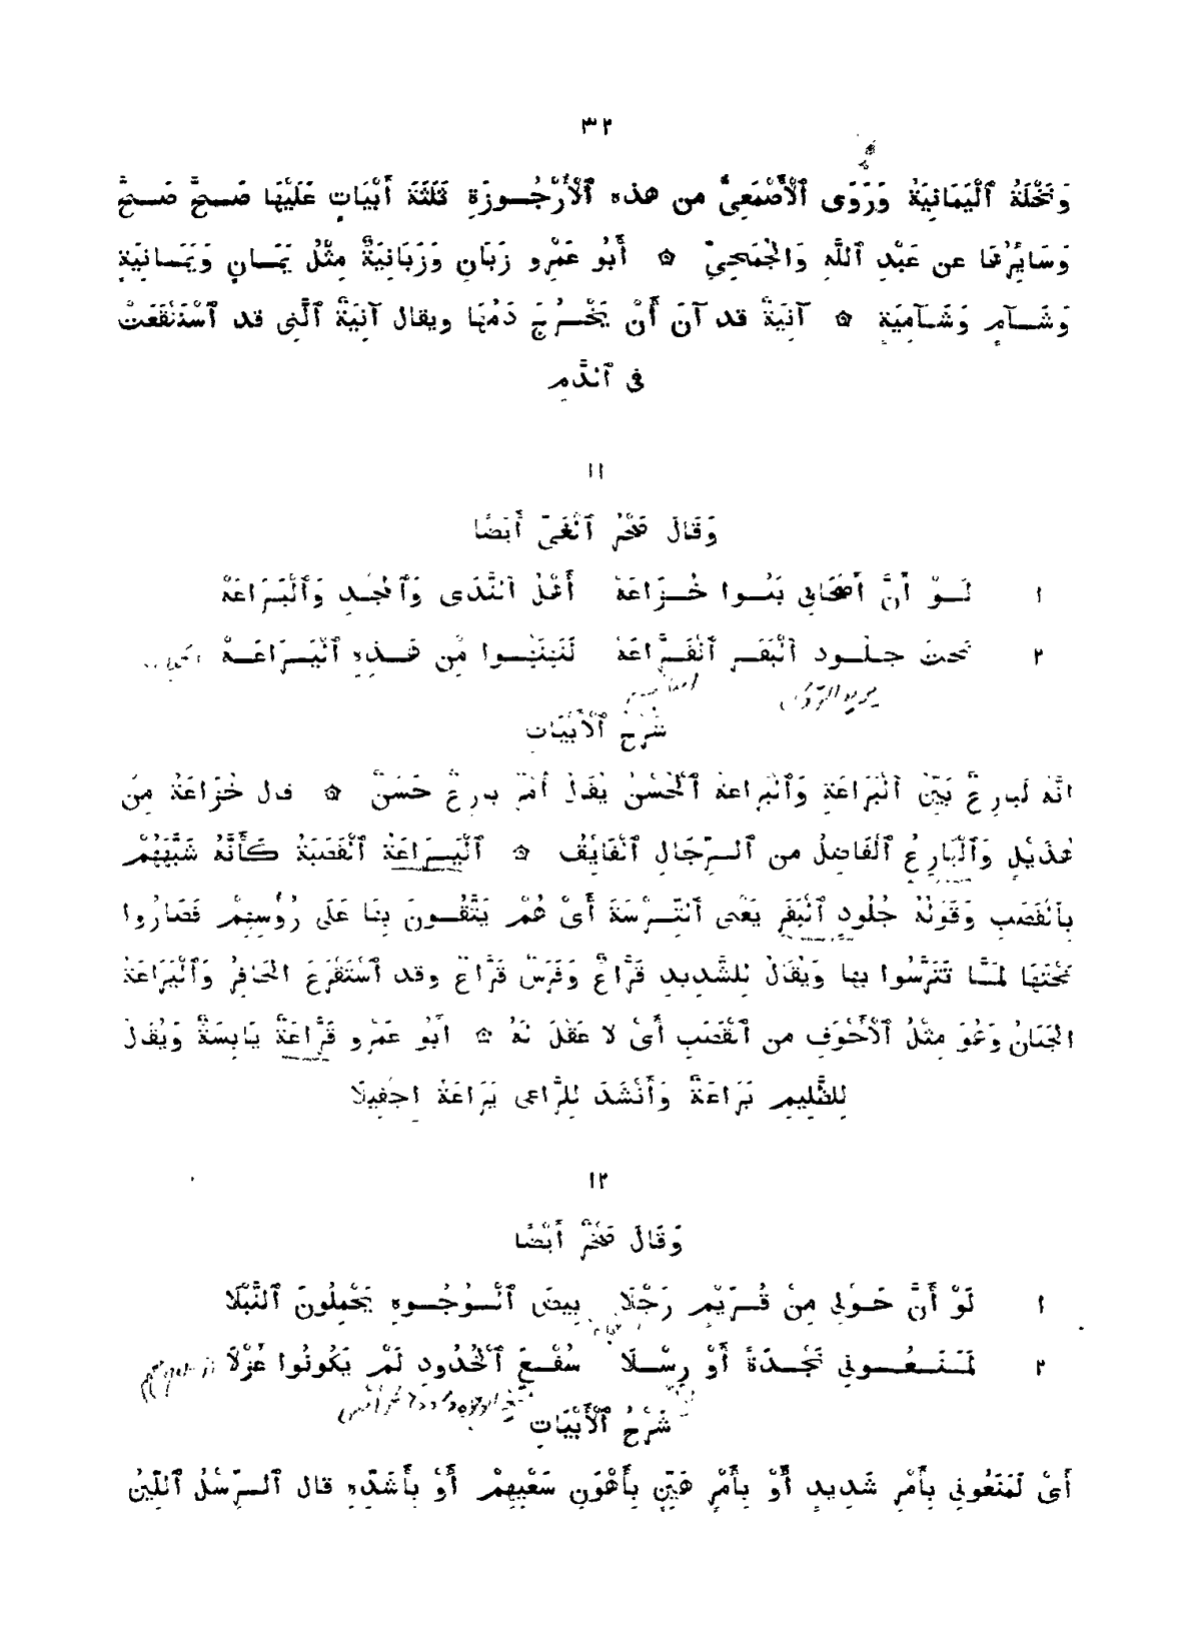 ٣٢
وَنَخْلَةُ ٱلْيَمَانِيَةُ وَرَوَى ٱلْأَصْمَعِىُّ من هذه ٱلْأُرْجُــوزَةِ ثَلَثَةَ أَبْيَاتٍ عَلَيْهَا صَــحَّ صَــحَّ
وَسَايِرُهَا عن عَبْدِ ٱللَّهِ وَالْجُمَحِىِّ ۞ أَبُو عَمْرٍو زَبَانٍ وَزَبَانِيَةٌ مِثْلُ يَمَــانٍ وَيَمَــانِيَةٍ
وَشَــآمٍ وَشَــآمِيَةٍ ۞ آنِيَةٌ قد آنَ أَنْ يَخْــرُجَ دَمُهَا ويقال آنِيَةٌ ٱلَّتِى قد ٱسْتَنْقَعَتْ
فى ٱلدَّمِ
١١
وَقَالَ صَخْرُ ٱلْغَىِّ أَيْضًا
١ لَــوْ أَنَّ أَصْحَابِى بَنُــوا خُــزَاعَهْ أَهْلُ ٱلنَّدَى وَٱلْمَجْــدِ وَٱلْبَــرَاعَهْ
٢ تحتَ جلــود ٱلْبَقَــرِ ٱلْقَــرَّاعَهْ لَمَنَعُــوا مِنْ هَــذِهِ ٱلْيَــرَاعَــهْ
شَرْحُ ٱلْأَبْيَاتِ
انَّهُ لَبَارِعٌ بَيِّنُ ٱلْبَرَاعَةِ وَٱلْبَرَاعَةُ ٱلْحُسْنُ يُقَالُ أَمْرٌ بَارِعٌ حَسَنٌ ۞ قال خُزَاعَةُ مِنْ
هُذَيْلٍ وَٱلْبَارِعُ ٱلْفَاضِلُ من ٱلــرِّجَالِ ٱلْفَايِقُ ۞ ٱلْيَــرَاعَةُ ٱلْقَصَبَةُ كَأَنَّهُ شَبَّهَهُمْ
بِٱلْقَصَبِ وَقَوْلُهُ جُلُودِ ٱلْبَقَرِ يَعْنِى ٱلتِّــرَسَةَ أَىْ هُمْ يَتَّقُــونَ بِهَا عَلَى رُؤُسِهِمْ فَصَارُوا
تَحْتَهَا لَمَّا تَتَرَّسُوا بها وَيُقَالُ لِلشَّدِيدِ قَرَّاعٌ وَفَرَسٌ قَرَّاعٌ وقد ٱسْتَقْرَعَ الْحَافِرُ وَٱلْيَرَاعَةُ
الْجَبَانُ وَهُوَ مِثْلُ ٱلْأَجْوَفِ من ٱلْقَصَبِ أَىْ لا عَقْلَ لَهُ ۞ أَبُو عَمْرٍو قَرَّاعَةٌ يَابِسَةٌ وَيُقَالُ
لِلظَّلِيمِ يَرَاعَةٌ وَأَنْشَدَ لِلرَّاعِى يَرَاعَةً إِجْفِيلَا
١٢
وَقَالَ صَخْرٌ أَيْضًا
١ لَوْ أَنَّ حَــوْلِى مِنْ قُــرَيْمٍ رَجْلَا بِيضَ ٱلْــوُجُــوهِ يَحْمِلُونَ ٱلنَّبْلَا
٢ لَمَنَــعُــونِى نَجْــدَةً أَوْ رِسْــلَا سُفْــعَ ٱلْخُدُودِ لَمْ يَكُونُوا عُزْلَا
شَرْحُ ٱلْأَبْيَاتِ
أَىْ لَمَنَعُونِى بِأَمْرٍ شَدِيدٍ أَوْ بِأَمْرٍ هَيِّنٍ بِأَهْوَنِ سَعْيِهِمْ أَوْ بِأَشَدِّهِ قال ٱلــرِّسْلُ ٱللِّينُ